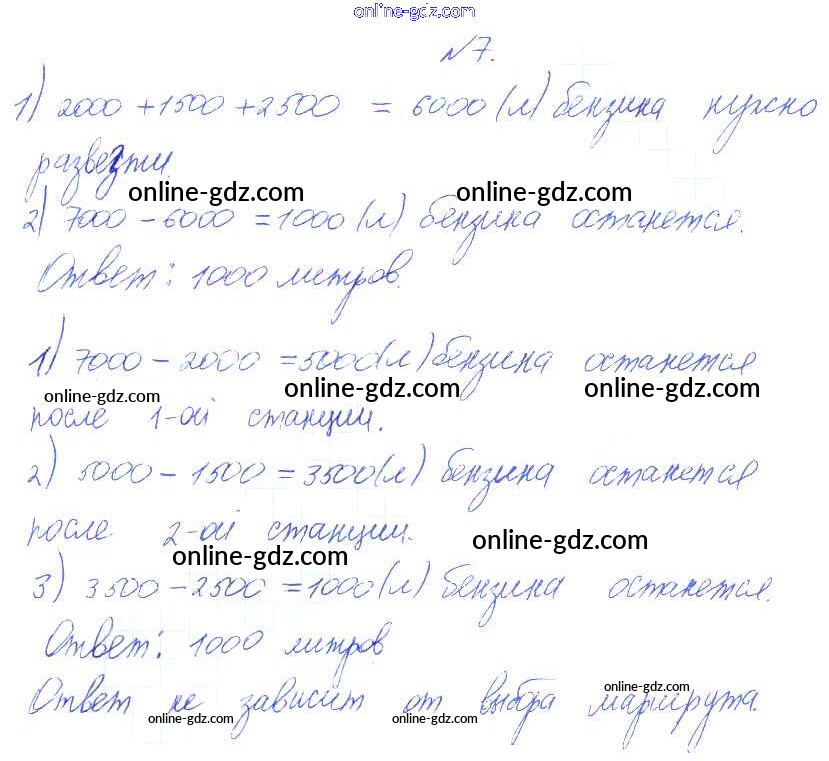 online-gdz.com
№7.
1) 2000 + 1500 + 2500 = 6000 (л) бензина нужно
развезти
online-gdz.com online-gdz.com
2) 7000 - 6000 = 1000 (л) бензина останется.
Ответ: 1000 литров.
1) 7000 - 2000 = 5000 (л) бензина останется
online-gdz.com online-gdz.com online-gdz.com
после 1-ой станции.
2) 5000 - 1500 = 3500 (л) бензина останется
после 2-ой станции.
online-gdz.com online-gdz.com
3) 3500 - 2500 = 1000 (л) бензина останется.
Ответ: 1000 литров
online-gdz.com
Ответ не зависит от выбра маршрута.
online-gdz.com online-gdz.com online-gdz.com